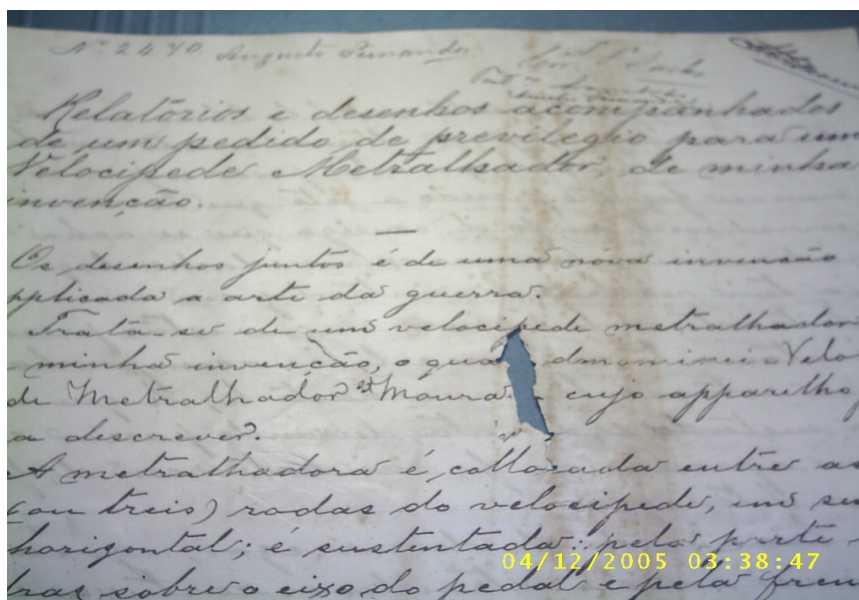 Nº 2470. Augusto Fernandes
Relatórios e desenhos acompanhados
de um pedido de previlegio para um
Velocipede Metralhador, de minha
invenção.
Os desenhos juntos é de uma nova invenção
pplicada a arte da guerra.
Trata-se de um velocipede metralhador
minha invenção, o qua dmominei Velo
de Metralhador Moura cujo apparelho
a descrever.
A metralhadora é collocada entre as
(ou treis) rodas do velocipede, um seu
horizontal; é sustentada pela parte
tras sobre o eixo do pedal e pela fren
04/12/2005 03:38:47